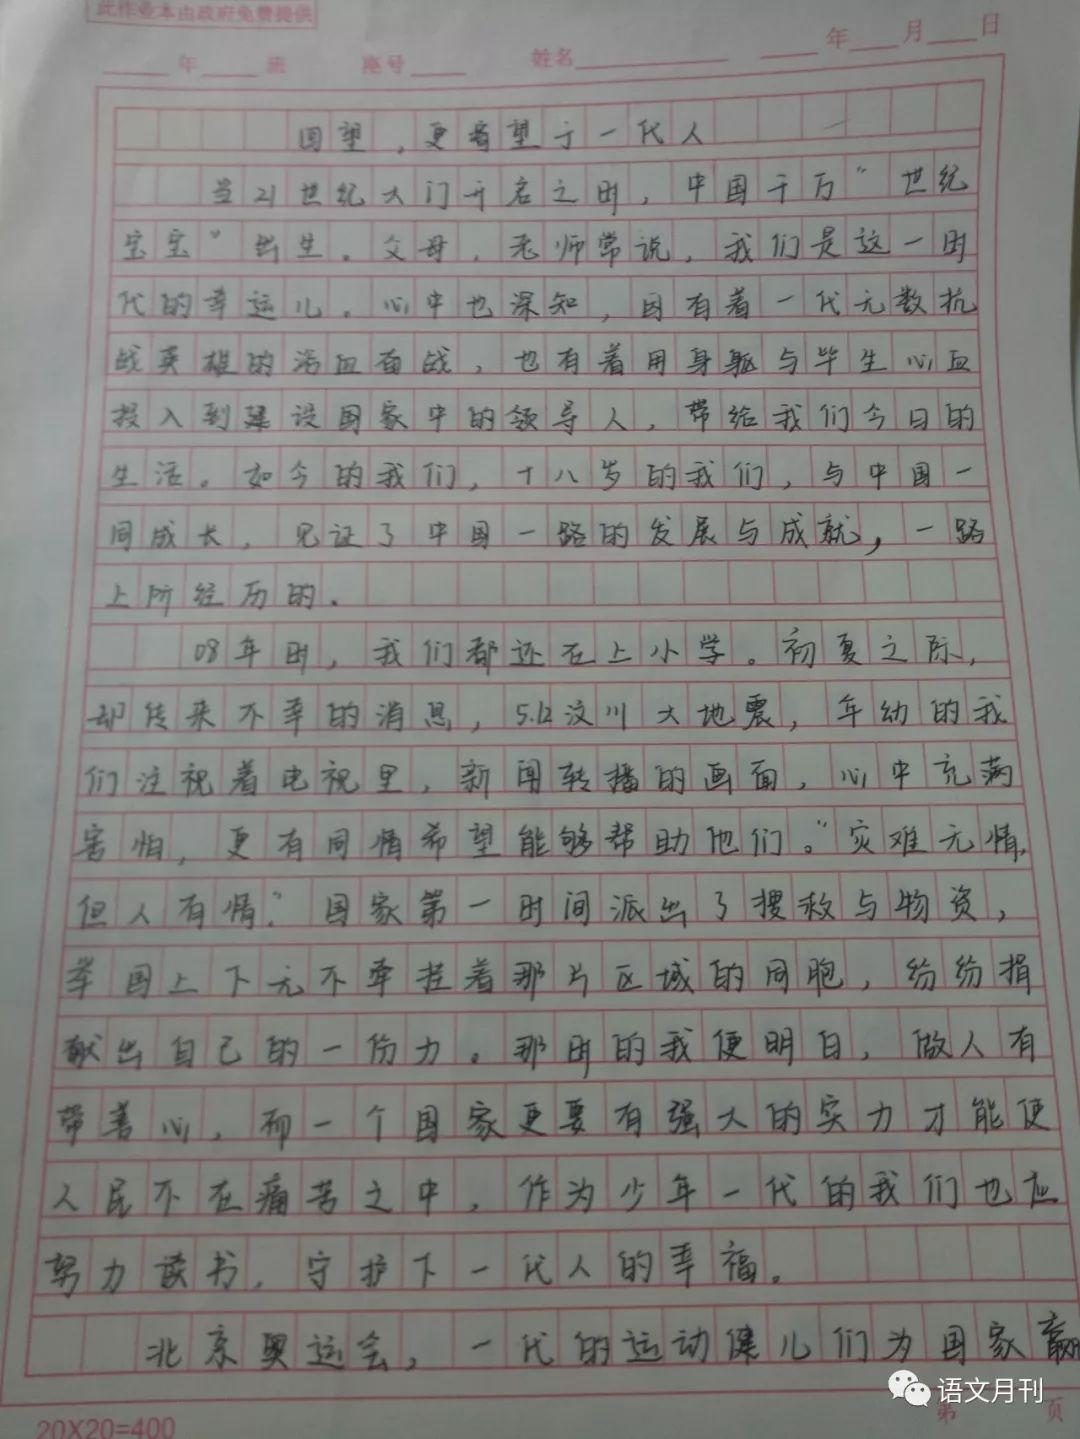 此作业本由政府免费提供
年 班 座号 姓名 年 月 日
回望，更看望于一代人
当21世纪大门开启之时，中国千万“世纪
宝宝”出生。父母、老师常说，我们是这一时
代的幸运儿。心中也深知，因有着一代无数抗
战英雄的浴血奋战，也有着用身躯与毕生心血
投入到建设国家中的领导人，带给我们今日的
生活。如今的我们，十八岁的我们，与中国一
同成长，见证了中国一路的发展与成就，一路
上所经历的．
08年时，我们都还在上小学。初夏之际，
却传来不幸的消息，5.12汶川大地震，年幼的我
们注视着电视里，新闻转播的画面，心中充满
害怕，更有同情希望能够帮助他们。“灾难无情，
但人有情。”国家第一时间派出了搜救与物资，
举国上下无不牵挂着那片区域的同胞，纷纷捐
献出自己的一份力。那时的我便明白，做人有
带善心，而一个国家更要有强大的实力才能使
人民不在痛苦之中，作为少年一代的我们也应
努力读书，守护下一代人的幸福。
北京奥运会，一代的运动健儿们为国家赢
语文月刊
第 页
20X20=400